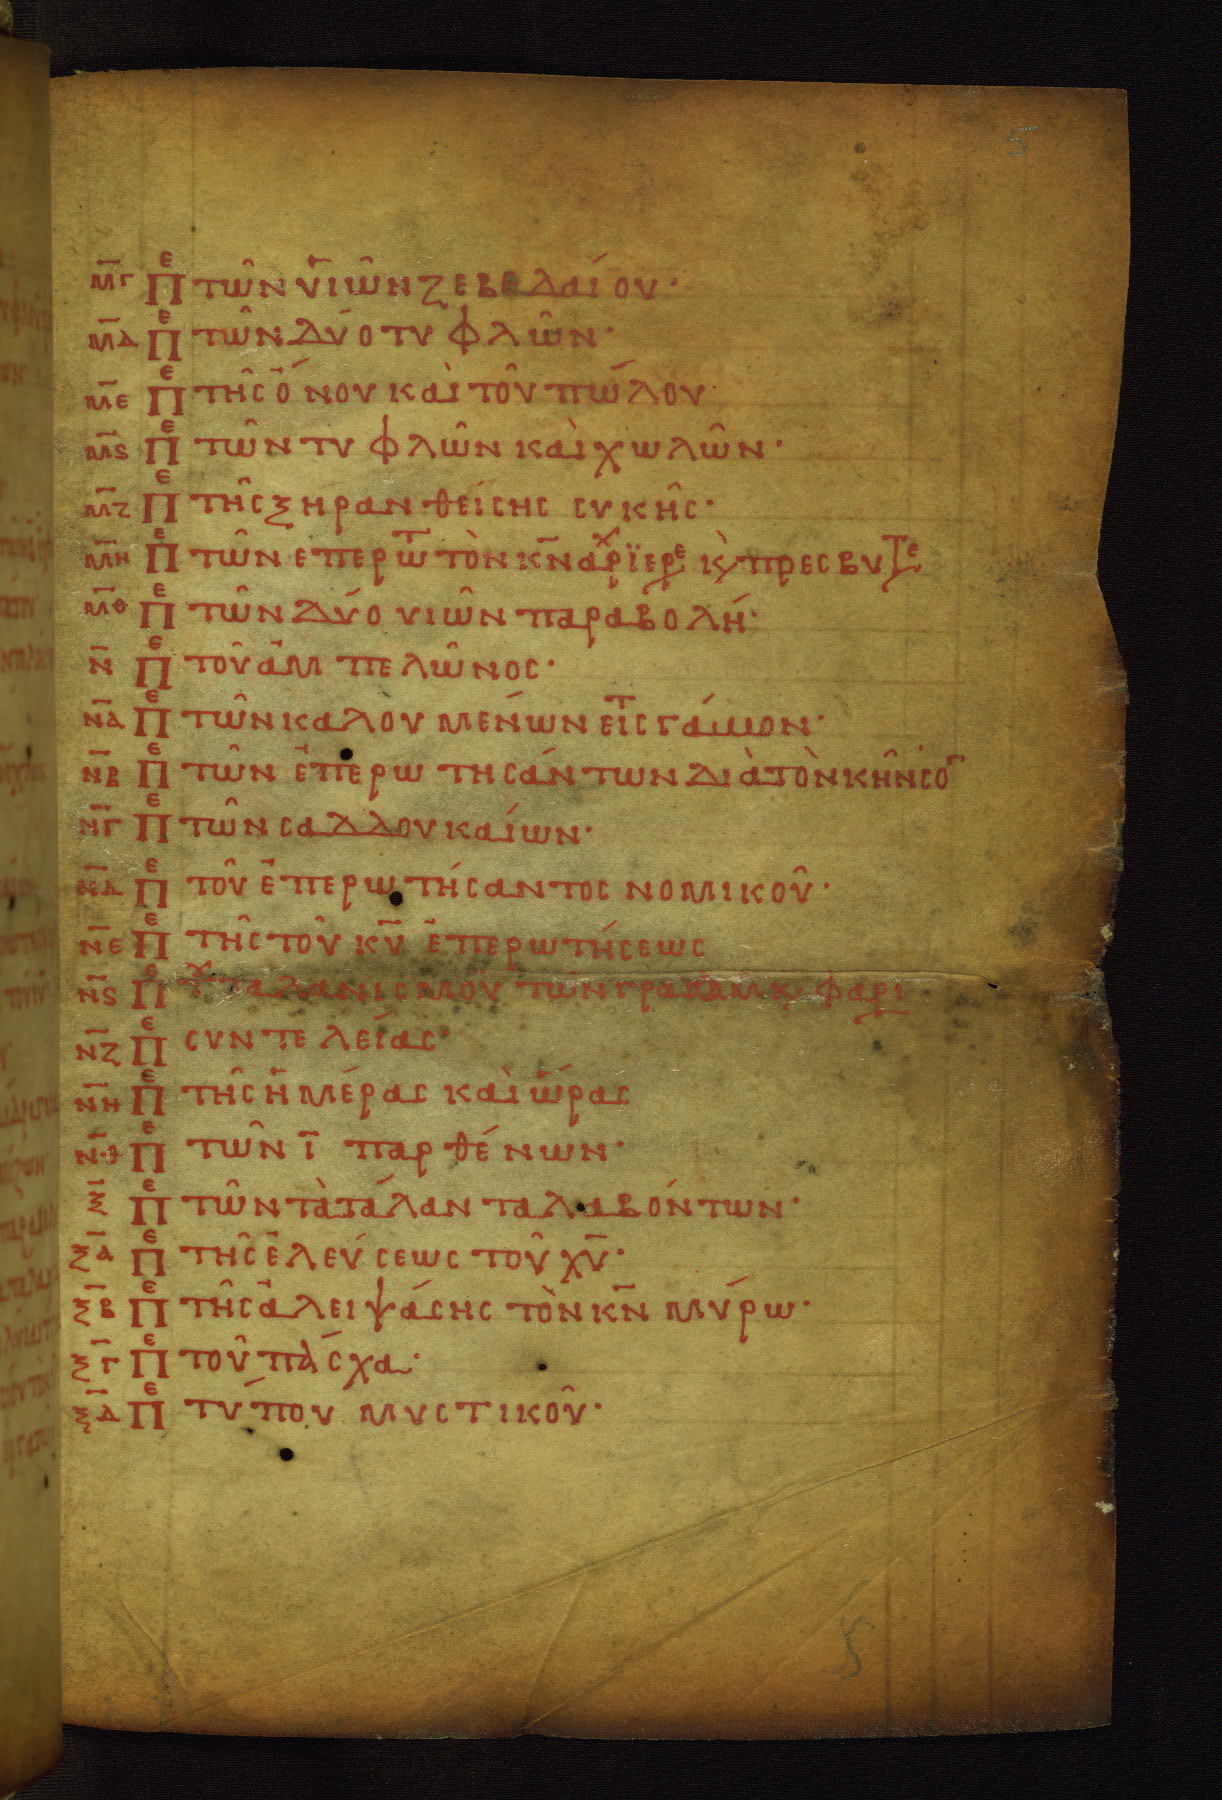 5
μγ Πε τῶν υἱῶν ζεβεδαίου·
μδ Πε τῶν δύο τυφλῶν·
με Πε τῆς ὄνου καὶ τοῦ πώλου
μς Πε τῶν τυφλῶν καὶ χωλῶν·
μζ Πε τῆς ξηρανθείσης συκῆς·
μη Πε τῶν επερωτ τὸν κν ἀρχϊερε κ πρεσβυτε
μθ Πε τῶν δύο υιῶν παραβολή·
ν Πε τοῦ ἀμπελῶνος·
να Πε τῶν καλουμένων εἰς τ γάμον·
νβ Πε τῶν ἐπερωτησάντων διὰ τὸν κῆνσο
νγ Πε τῶν σαδδουκαίων·
νδ Πε τοῦ ἐπερωτήσαντος νομικοῦ·
νε Πε τῆς τοῦ κυ ἐπερωτήσεως
νς Πε τ ταλανισμοῦ τῶν γραμμ κ φαρι
νζ Πε συντελείας·
νη Πε τῆς ἡμέρας καὶ ὥρας
νθ Πε τῶν ι παρθένων·
ξ Πε τῶν τὰ τάλαντα λαβόντων·
ξα Πε τῆς ἐλεύσεως τοῦ χυ·
ξβ Πε τῆς ἀλειψάσης τὸν κν μύρω·
ξγ Πε τοῦ πάσχα·
ξδ Πε τύπου μυστικοῦ·
5